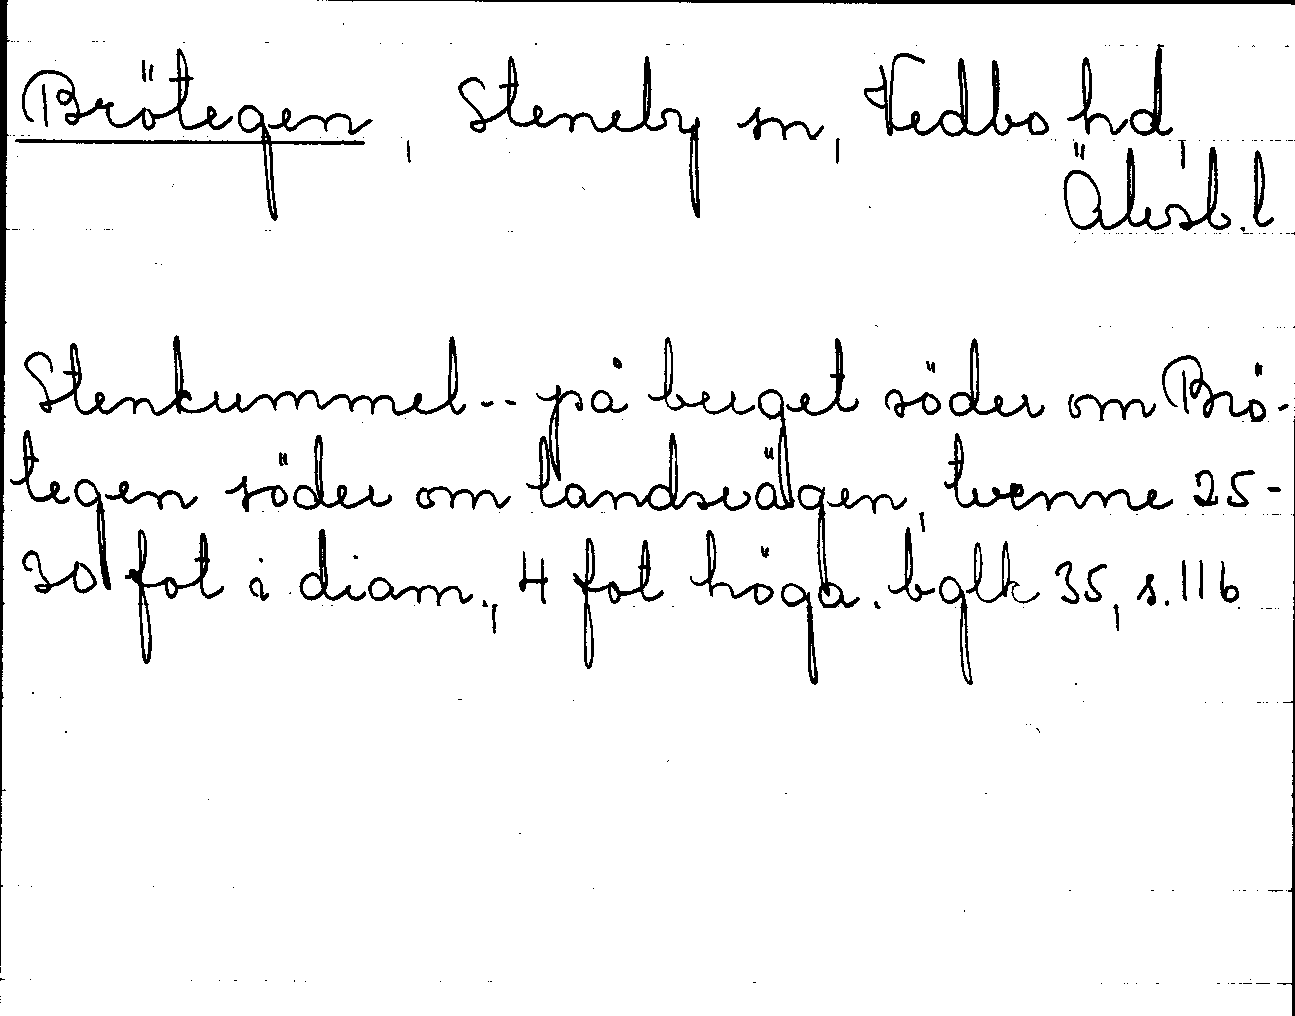 Brötegen, Steneby sn, Vedbo hd,
Älvsb. l
Stenkummel -- på berget söder om Brö-
tegen söder om landsvägen, tvenne 25-
30 fot i diam., 4 fot höga. bglk 35, s. 116